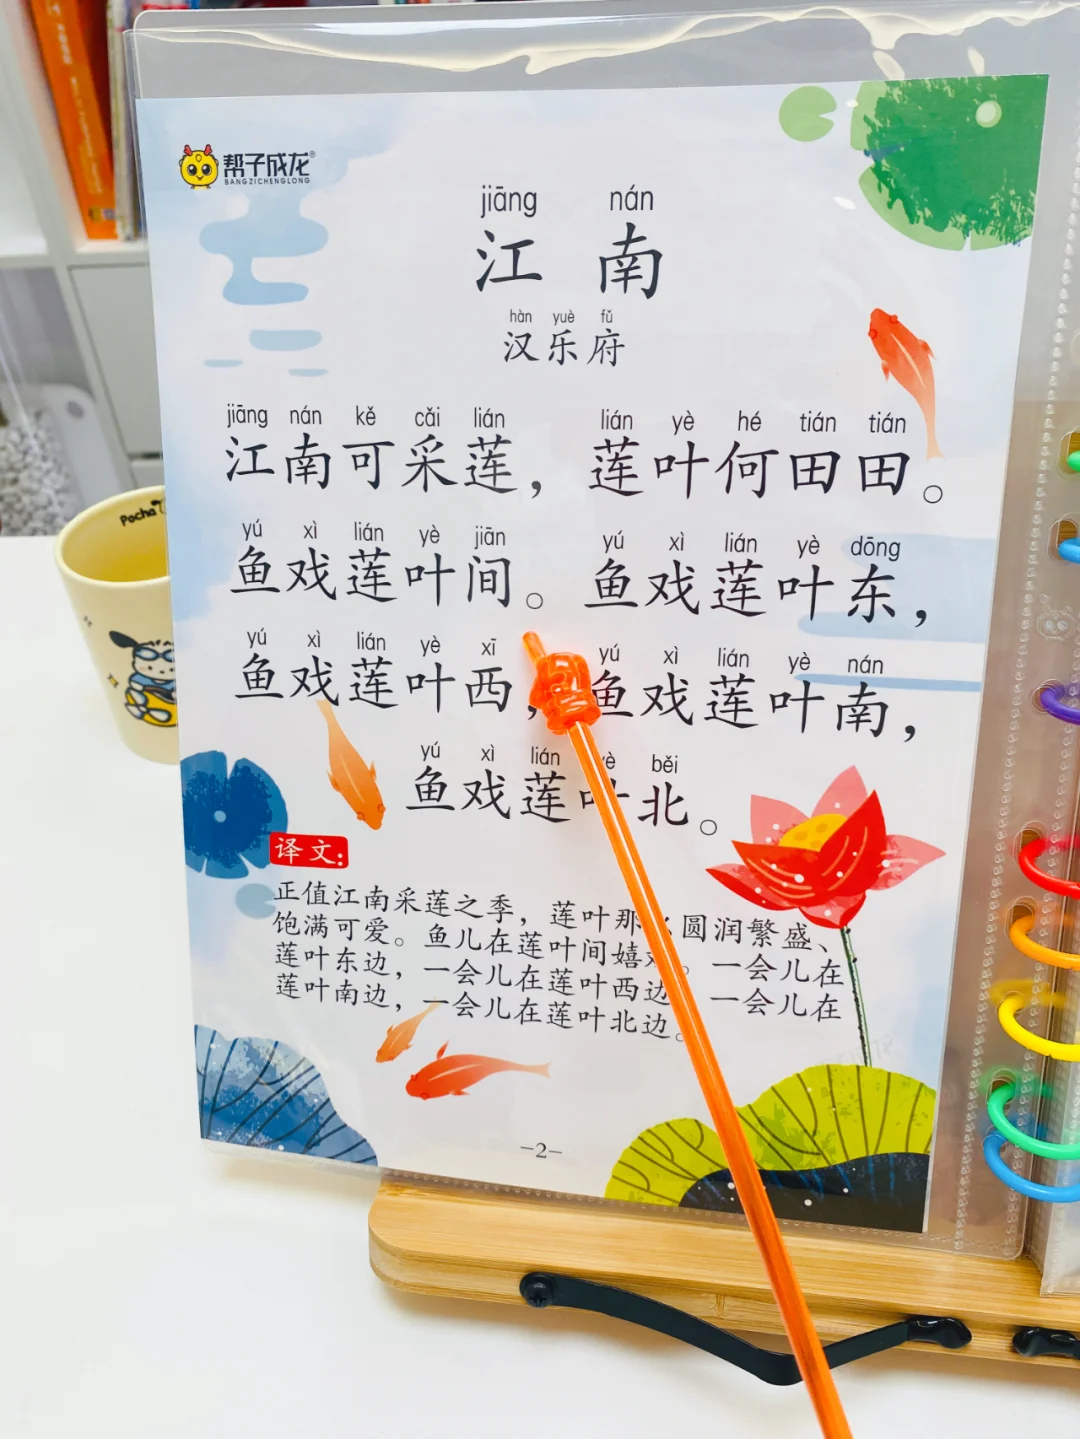 帮子成龙®
BANGZICHENGLONG
jiāng nán
江 南
hàn yuè fǔ
汉乐府
jiāng nán kě cǎi lián lián yè hé tián tián
江南可采莲，莲叶何田田。
yú xì lián yè jiān yú xì lián yè dōng
鱼戏莲叶间。鱼戏莲叶东，
yú xì lián yè xī yú xì lián yè nán
鱼戏莲叶西，鱼戏莲叶南，
yú xì lián yè běi
鱼戏莲叶北。
译文：
正值江南采莲之季，莲叶那么圆润繁盛、
饱满可爱。鱼儿在莲叶间嬉戏。一会儿在
莲叶东边，一会儿在莲叶西边，一会儿在
莲叶南边，一会儿在莲叶北边。
-2-
Pocha